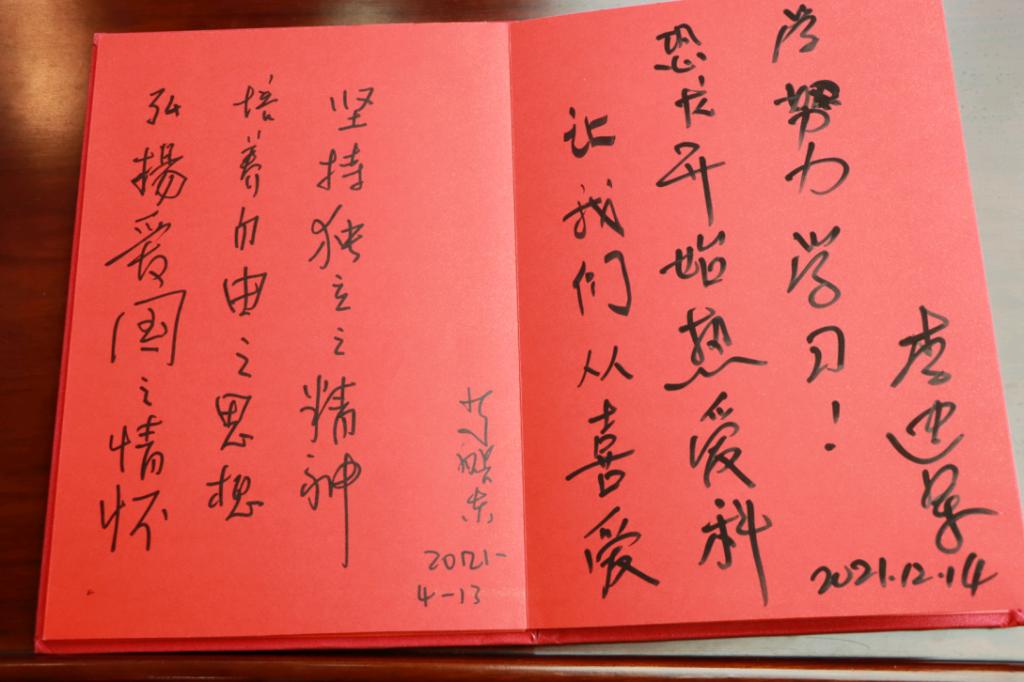 弘揚爱国之情怀
培养自由之思想
坚持独立之精神
2021-
4-13
让我们从喜爱
恐龙开始热爱科
学努力学习！
2021.12.14